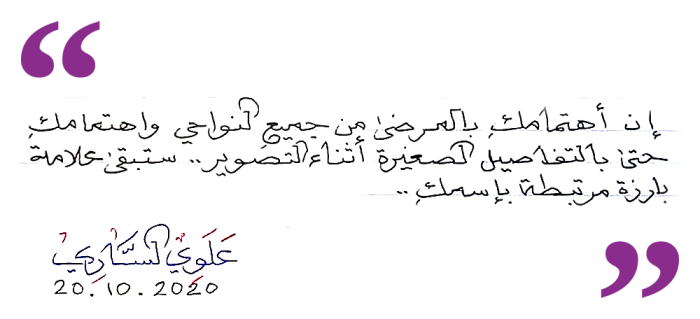 إن أهتمامك بالمرضى من جميع النواحي واهتمامك
حتى بالتفاصيل الصغيرة أثناء التصوير.. ستبقى علامة
بارزة مرتبطة بإسمك..
عَلَوي السَّاري
20.10.2020